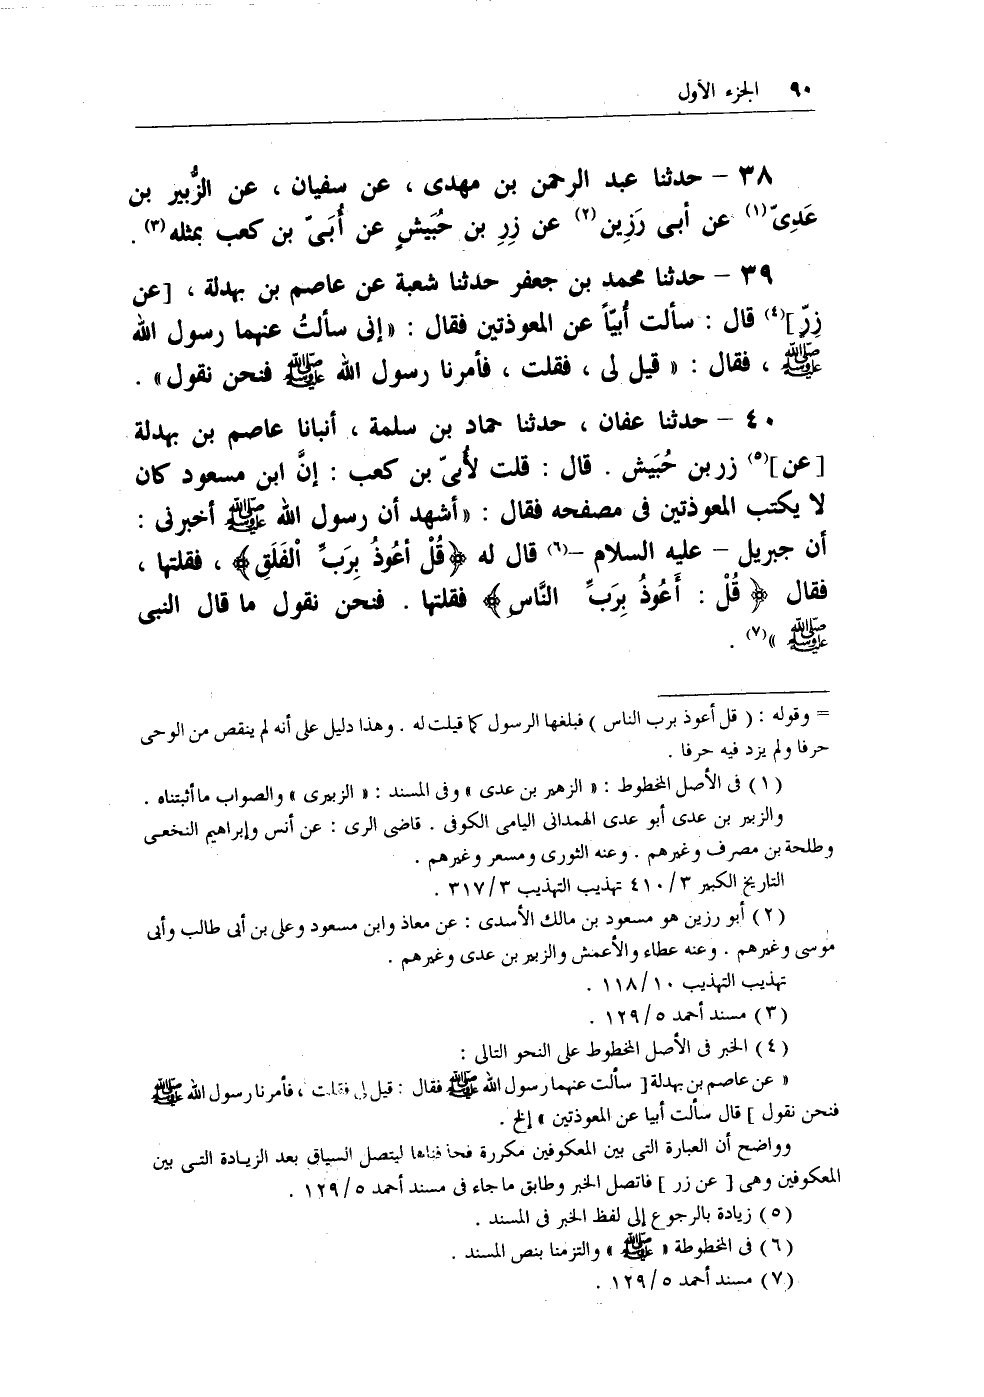 ٩٠ الجزء الأول
٣٨ – حدثنا عبد الرحمن بن مهدى ، عن سفيان ، عن الزُّبير بن
عَدِىّ(١) عن أبى رَزِين(٢) عن زِرِ بن حُبَيشٍ عن أُبَىّ بن كعب بمثله(٣) .
٣٩ – حدثنا محمد بن جعفر حدثنا شعبة عن عاصم بن بهدلة ، [عن
زِرّ](٤) قال : سألت أُبيّاً عن المعوذتين فقال : «إنى سألتُ عنهما رسول الله
ﷺ ، فقال : « قيل لى ، فقلت ، فأمرنا رسول الله ﷺ فنحن نقول» .
٤٠ – حدثنا عفان ، حدثنا حماد بن سلمة ، أنبانا عاصم بن بهدلة
[عن](٥) زر بن حُبَيش . قال : قلت لأُبىّ بن كعب : إنَّ ابن مسعود كان
لا يكتب المعوذتين فى مصفحه فقال : «أشهد أن رسول الله ﷺ أخبرنى :
أن جبريل – عليه السلام –(٦) قال له ﴿قُلْ أعُوذُ بِرَبِّ الْفَلَقِ﴾ ، فقلتها ،
فقال ﴿ قُلْ : أَعُوذُ بِرَبِّ النَّاسِ﴾ فقلتها . فنحن نقول ما قال النبى
ﷺ »(٧) .
= وقوله : ( قل أعوذ برب الناس ) فبلغها الرسول كما قيلت له . وهذا دليل على أنه لم ينقص من الوحى
حرفا ولم يزد فيه حرفا .
(١) فى الأصل المخطوط : « الزهير بن عدى » وفى المسند : « الزبيرى » والصواب ما أثبتناه .
والزبير بن عدى أبو عدى الهمدانى اليامى الكوفى . قاضى الرى : عن أنس وإبراهيم النخعى
وطلحة بن مصرف وغيرهم . وعنه الثورى ومسعر وغيرهم .
التاريخ الكبير ٤١٠/٣ تهذيب التهذيب ٣١٧/٣ .
(٢) أبو رزين هو مسعود بن مالك الأسدى : عن معاذ وابن مسعود وعلى بن أبى طالب وأبى
موسى وغيرهم . وعنه عطاء والأعمش والزبير بن عدى وغيرهم .
تهذيب التهذيب ١١٨/١٠ .
(٣) مسند أحمد ١٢٩/٥ .
(٤) الخبر فى الأصل المخطوط على النحو التالى :
« عن عاصم بن بهدلة [ سألت عنهما رسول الله ﷺ فقال : قيل لى فقلت ، فأمرنا رسول الله ﷺ
فنحن نقول ] قال سألت أبيا عن المعوذتين » إلخ .
وواضح أن العبارة التى بين المعكوفين مكررة فحذفناها ليتصل السياق بعد الزيادة التى بين
المعكوفين وهى [ عن زر ] فاتصل الخبر وطابق ما جاء فى مسند أحمد ١٢٩/٥ .
(٥) زيادة بالرجوع إلى لفظ الخبر فى المسند .
(٦) فى المخطوطة « ﷺ » والتزمنا بنص المسند .
(٧) مسند أحمد ١٢٩/٥ .